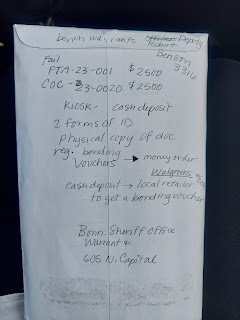 bench warrants Deputy
Robert Benson
3316
Fail
FTA-23-001 $2500
COC-23-0020 $2500
KIOSK- cash deposit
2 forms of ID
physical copy of doc.
reg. bonding
vouchers → money order
Walgreens
cash deposit → local retailer
to get a bonding voucher
Bonn. Sheriff Office
Warrant #
605 N. Capital